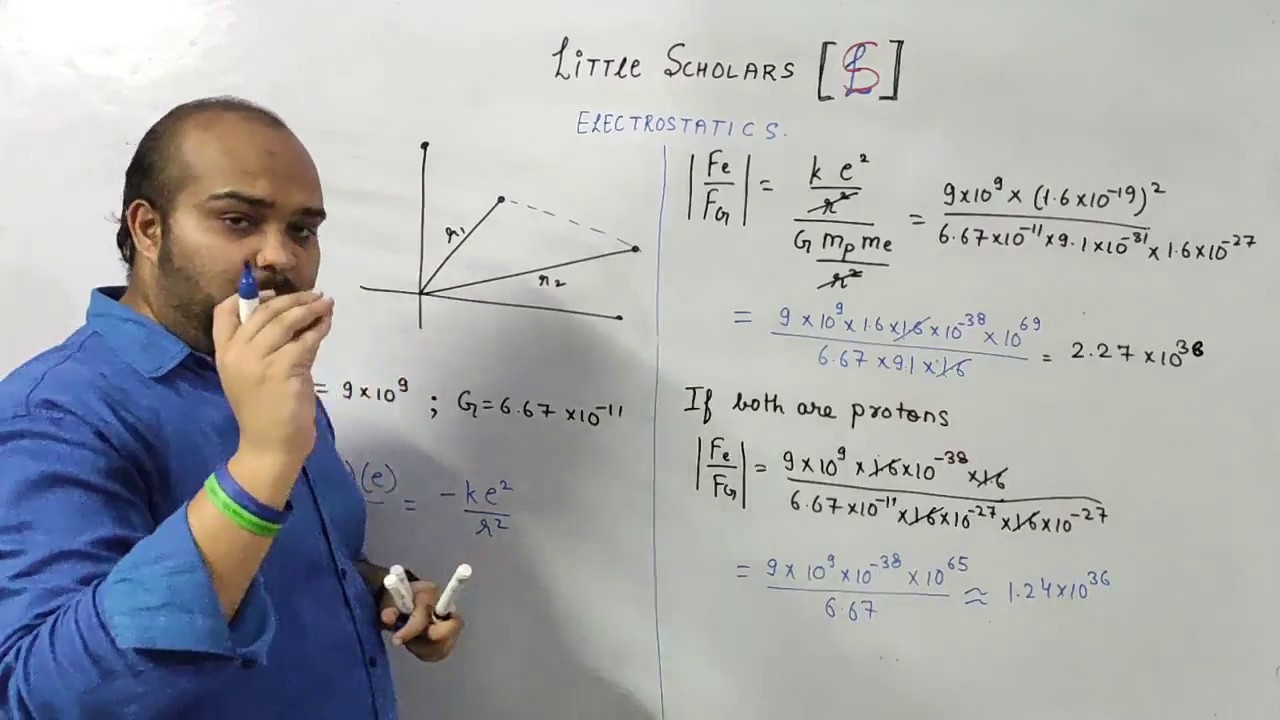 LITTLE SCHOLARS [LS]
ELECTROSTATICS.
r1
r2
= 9×10⁹ ; G = 6.67×10⁻¹¹
)(e) = -ke²/r²
|Fe/FG| = (k e²/r²)/(G mp me/r²) = 9×10⁹ × (1.6×10⁻¹⁹)² / 6.67×10⁻¹¹×9.1×10⁻³¹×1.6×10⁻²⁷
= 9×10⁹×1.6×16×10⁻³⁸×10⁶⁹ / 6.67×9.1×16 = 2.27×10³⁸
If both are protons
|Fe/FG| = 9×10⁹×16×10⁻³⁸×16 / 6.67×10⁻¹¹×16×10⁻²⁷×16×10⁻²⁷
= 9×10⁹×10⁻³⁸×10⁶⁵ / 6.67 ≈ 1.24×10³⁶